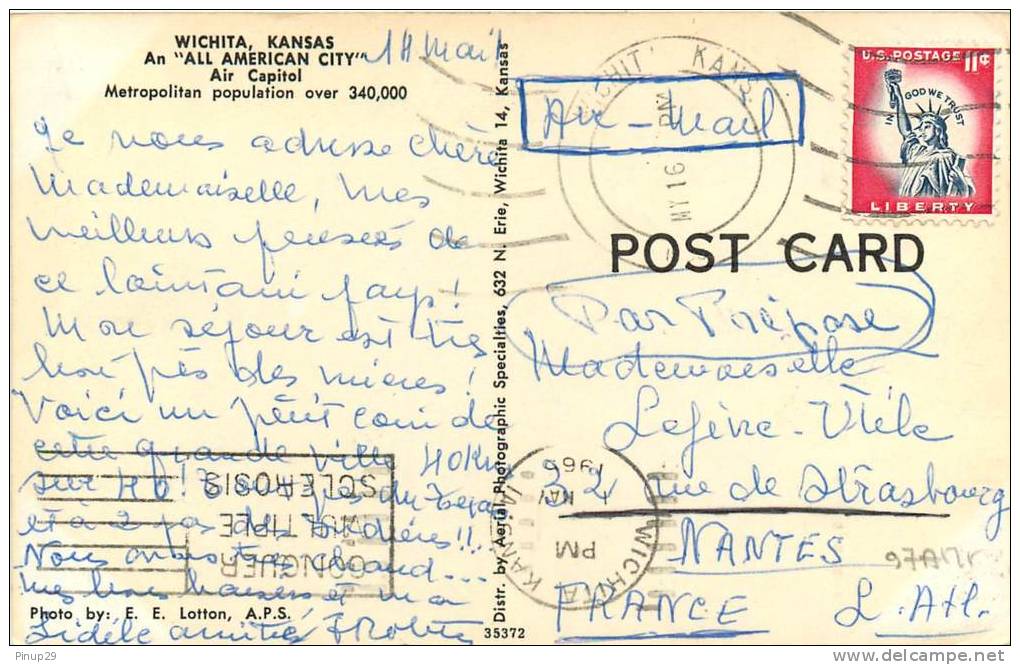 WICHITA, KANSAS
An "ALL AMERICAN CITY"
Air Capitol
Metropolitan population over 340,000
Je vous adresse chère
Mademoiselle, mes
meilleurs pensées de
ce lointain pays!
Mon séjour est très
bon près des miens!
Voici un petit coin de
cette grande ville 40 Km
sur 40!
et à 2 pas des
Nous
mes bons baisers et ma
fidèle amitié
Photo by: E. E. Lotton, A.P.S.
Distr. by Aerial Photographic Specialties, 632 N. Erie, Wichita 14, Kansas
35372
Air-Mail
KANS
PM
MY 16
U.S. POSTAGE 11¢
IN GOD WE TRUST
LIBERTY
POST CARD
Par Préposé
Mademoiselle
Lefèvre-Utile
32 rue de Strasbourg
NANTES
FRANCE L. Atl.
WICHITA KANS
PM
MAY
1966
CONQUER
MULTIPLE
SCLEROSIS
Pinup29
www.delcampe.net